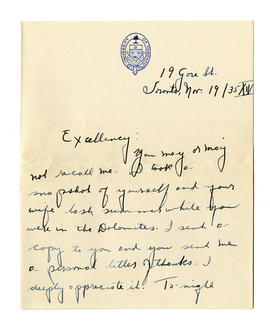 19 Gore St.
Toronto, Nov. 19/35 XIV
Excellency:
You may or may
not recall me. I took a
snapshot of yourself and your
wife last summer while you
were in the Dolomites. I sent a
copy to you and you sent me
a personal letter of thanks. I
deeply appreciate it. To-night